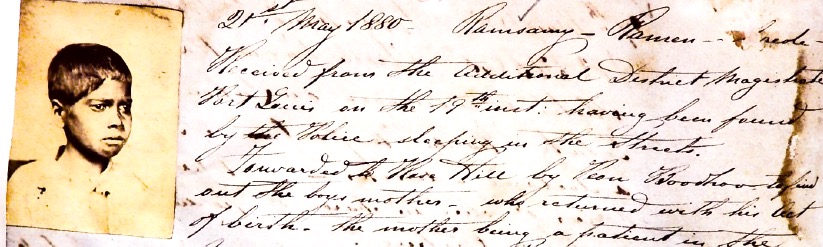 21st May 1880 - Ramsamy - Ramen -
Received from the Additional District Magistrate
Port Louis on the 19th inst: having been found
by the Police sleeping in the Streets.
Forwarded to Rose Hill by Boodhoo to find
out the boys mother - who returned with his act
of birth - the mother being a patient in the